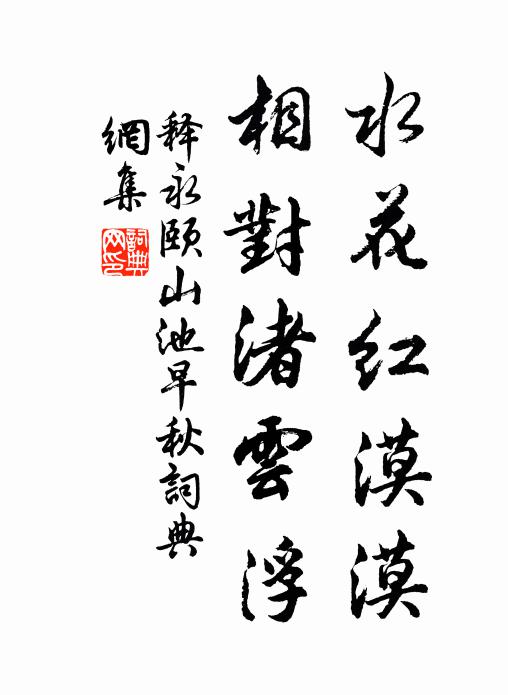 水花红漠漠
相對渚雲浮
释永頤山池早秋詞典
網集
詞典
网印